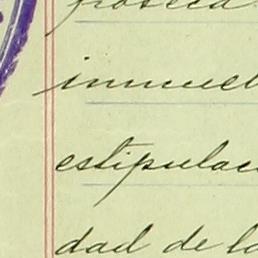 inmuebl
estipulac
dad de la